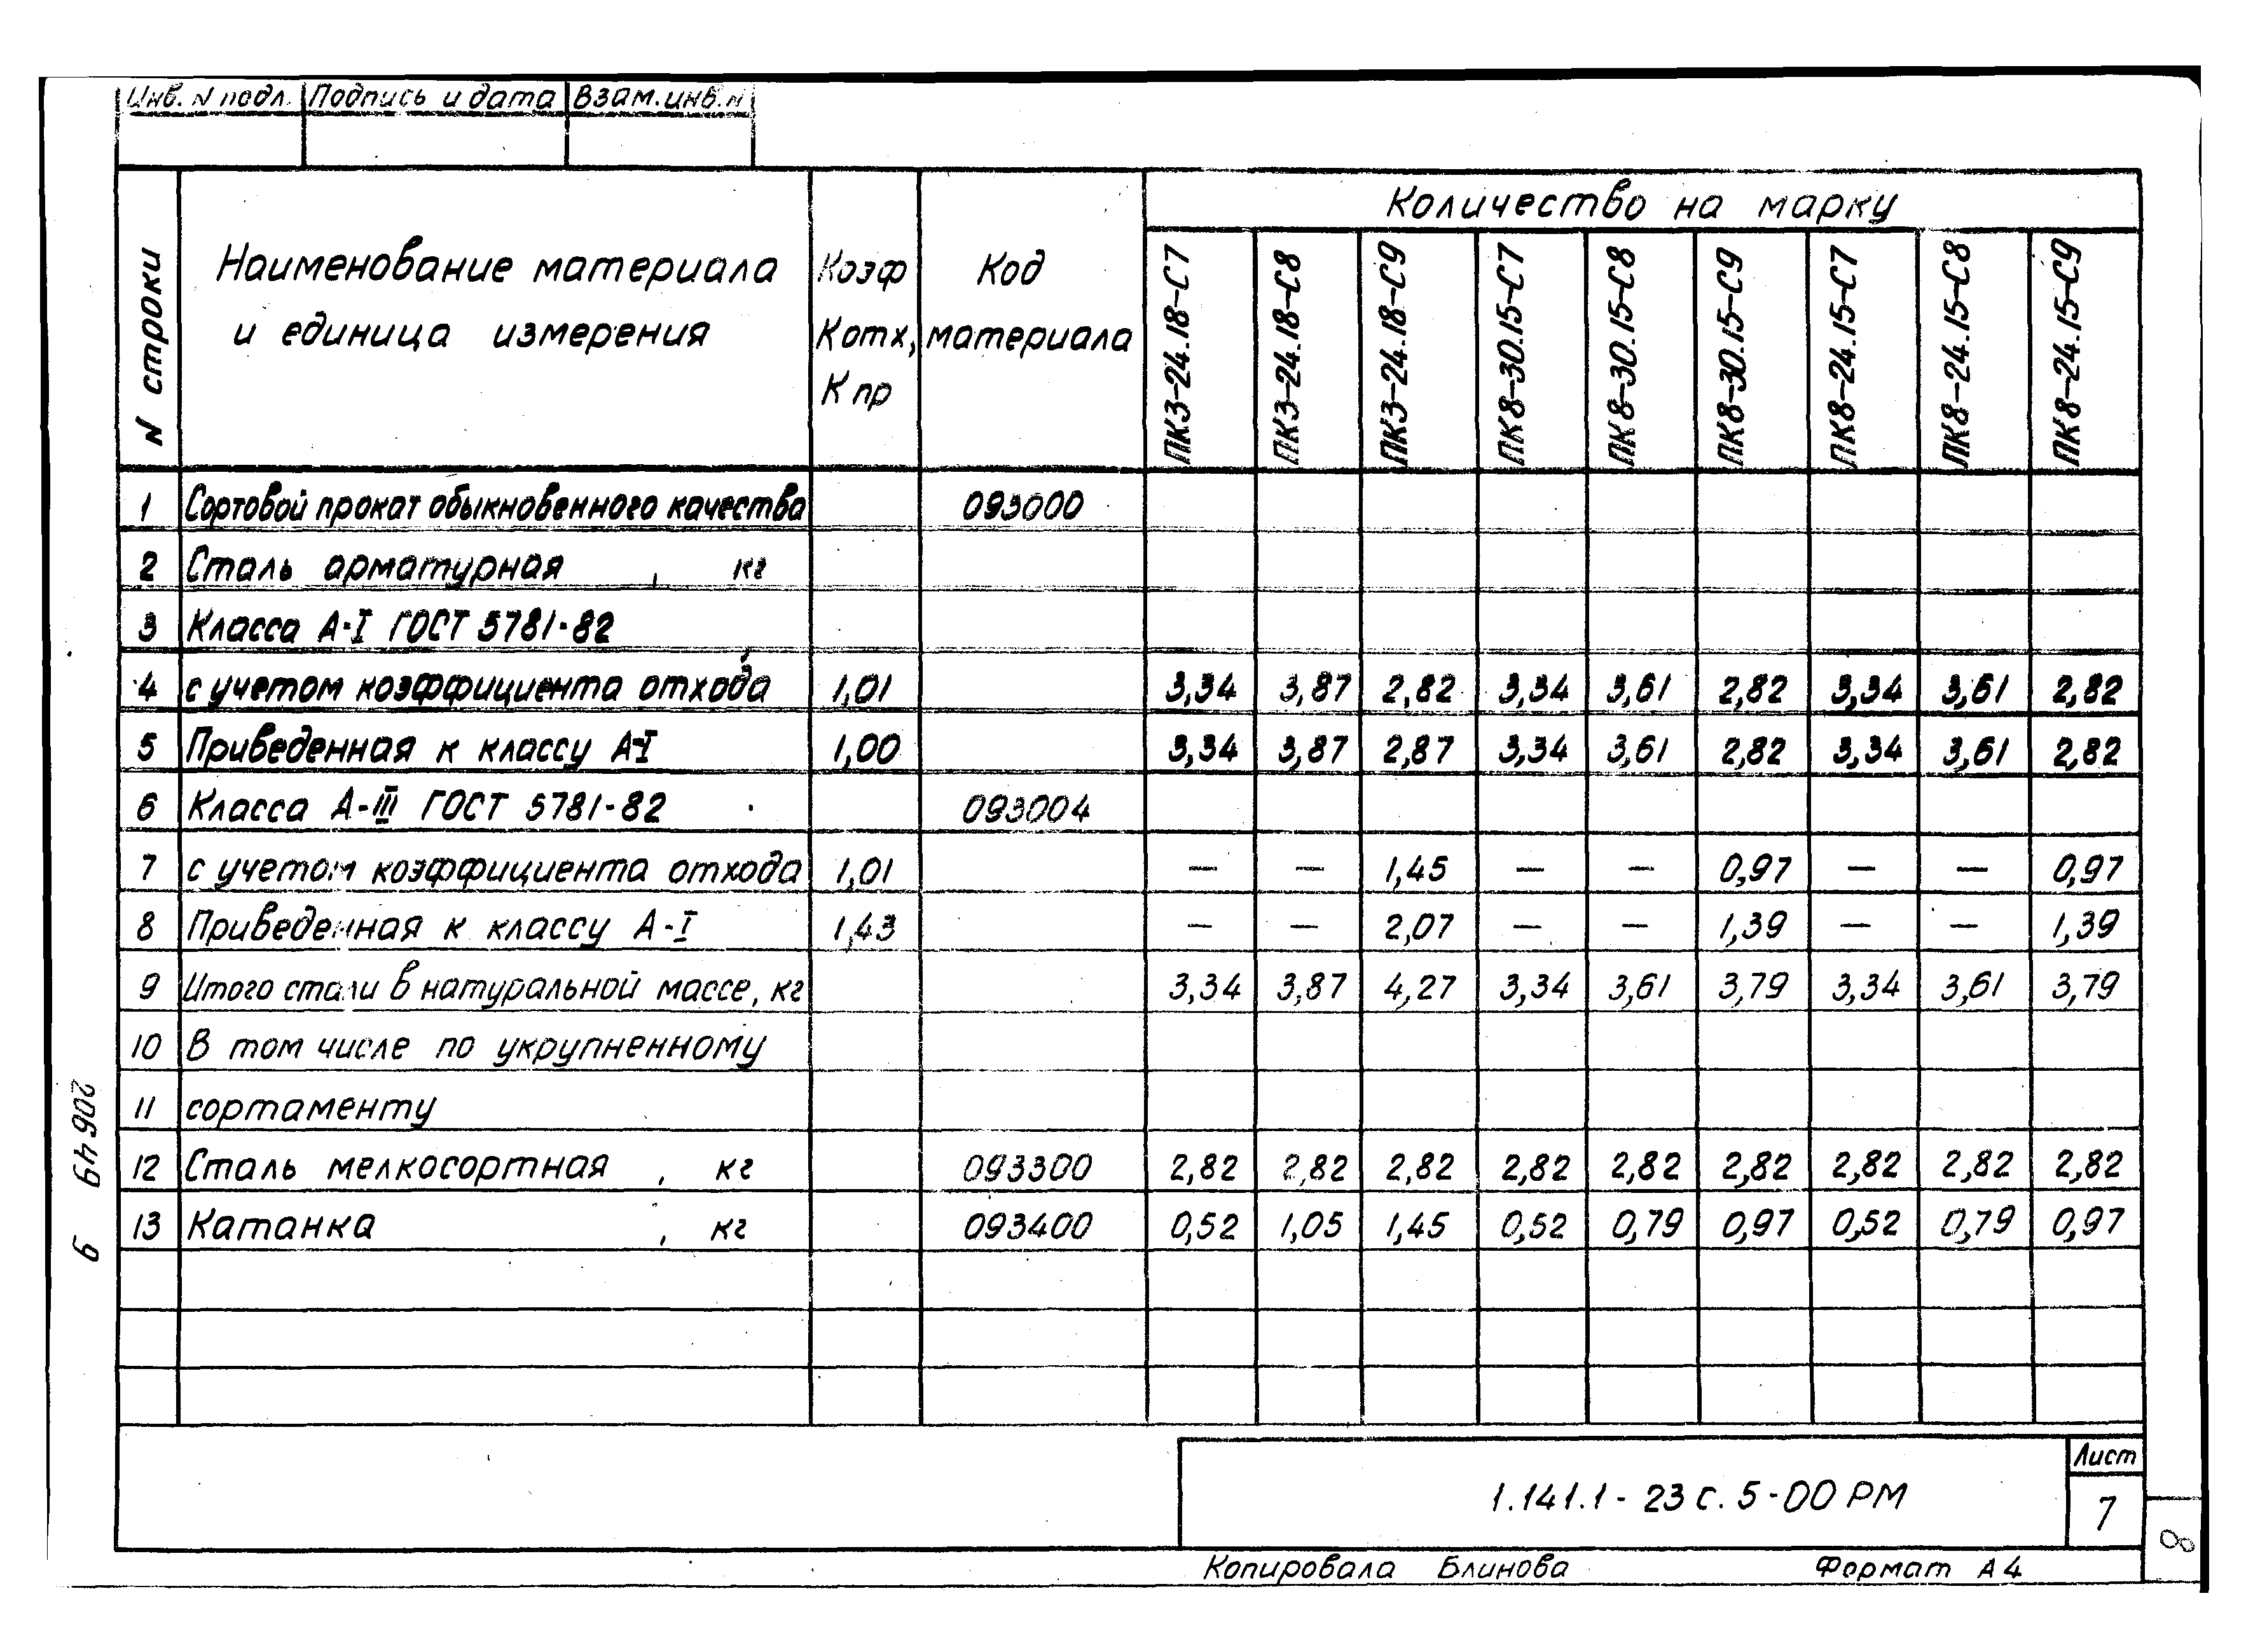 Инв. N подл. Подпись и дата Взам. инв. N
N строки
Наименование материала
и единица измерения
Коэф
Котх,
К пр
Код
материала
Количество на марку
ПК3-24.18-С7 ПК3-24.18-С8 ПК3-24.18-С9 ПК8-30.15-С7 ПК8-30.15-С8 ПК8-30.15-С9 ПК8-24.15-С7 ПК8-24.15-С8 ПК8-24.15-С9
1 Сортовой прокат обыкновенного качества 093000
2 Сталь арматурная , кг
3 Класса А-I ГОСТ 5781-82
4 с учетом коэффициента отхода 1,01 3,34 3,87 2,82 3,34 3,61 2,82 3,34 3,61 2,82
5 Приведенная к классу А-I 1,00 3,34 3,87 2,87 3,34 3,61 2,82 3,34 3,61 2,82
6 Класса А-III ГОСТ 5781-82 093004
7 с учетом коэффициента отхода 1,01 — — 1,45 — — 0,97 — — 0,97
8 Приведенная к классу А-I 1,43 — — 2,07 — — 1,39 — — 1,39
9 Итого стали в натуральной массе, кг 3,34 3,87 4,27 3,34 3,61 3,79 3,34 3,61 3,79
10 В том числе по укрупненному
11 сортаменту
12 Сталь мелкосортная , кг 093300 2,82 2,82 2,82 2,82 2,82 2,82 2,82 2,82 2,82
13 Катанка , кг 093400 0,52 1,05 1,45 0,52 0,79 0,97 0,52 0,79 0,97
20649 9
1.141.1-23 с. 5-00 РМ
Лист
7
8
Копировала Блинова Формат А4